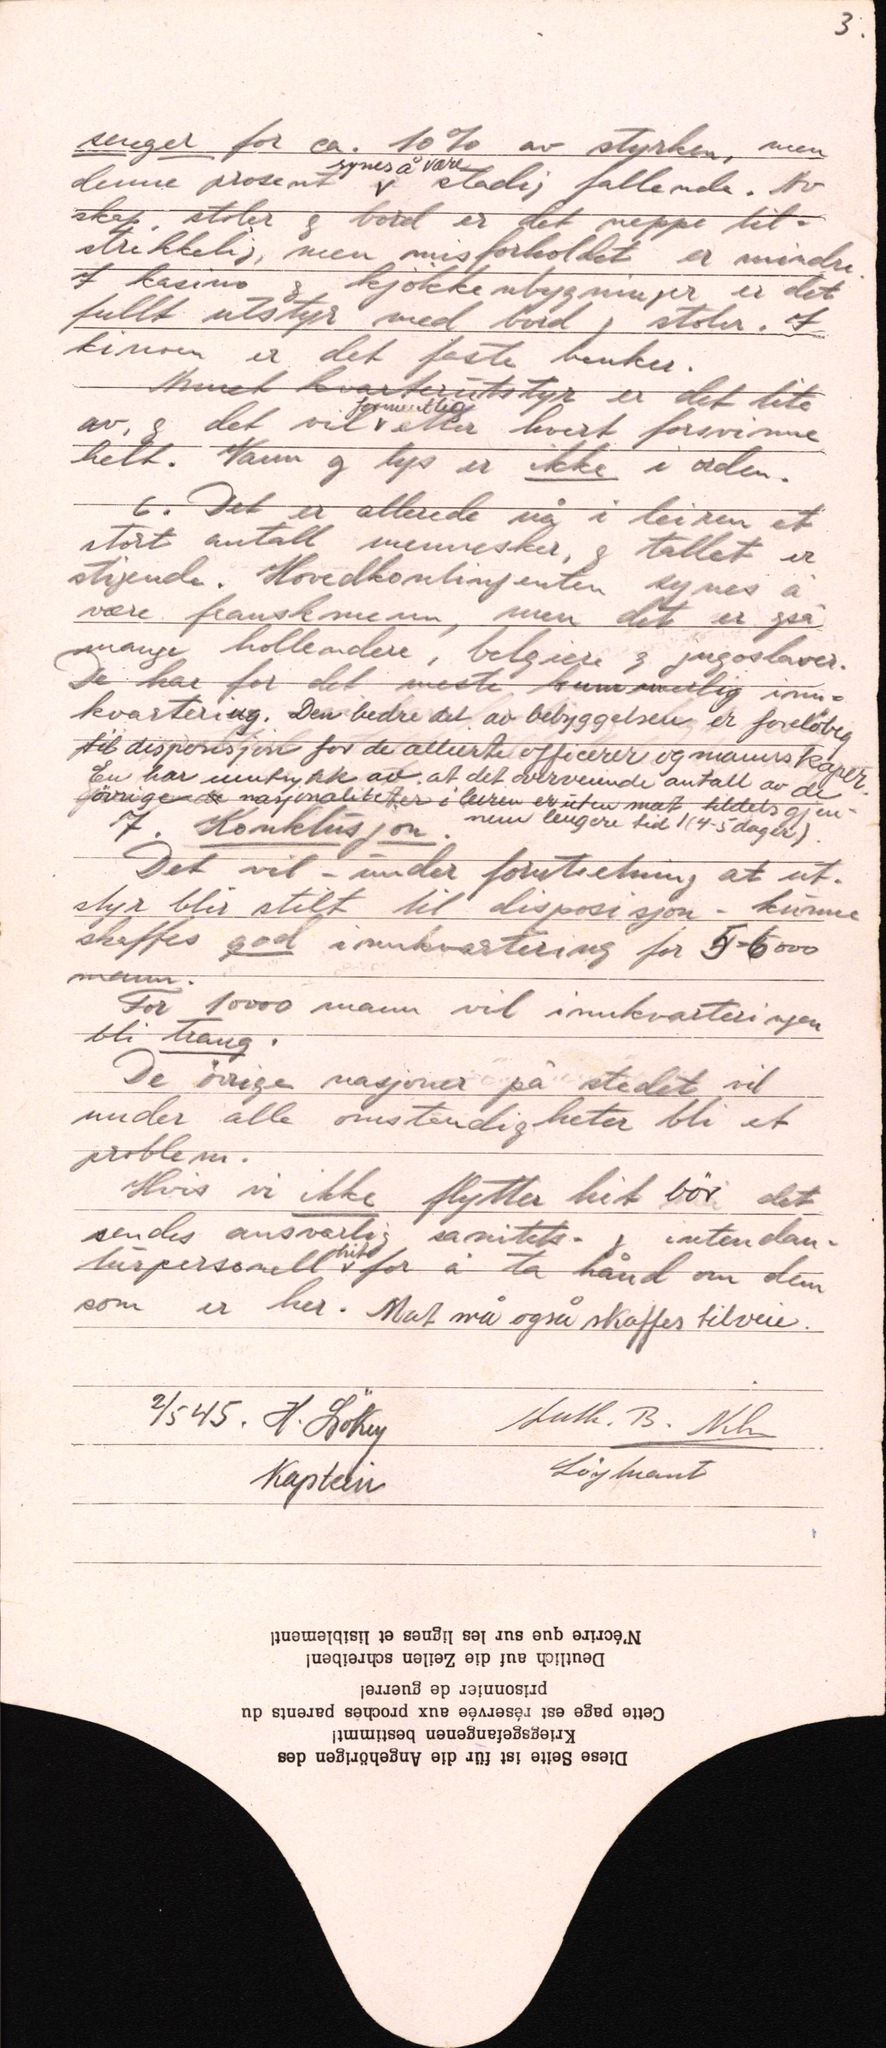 3.
senger for ca. 10% av styrken, men
denne prosent synes å være stadig fallende. Av
skap, stoler & bord er det neppe til-
strekkelig, men misforholdet er mindre.
I kasino & kjökkenbygninger er det
fullt utstyr med bord & stoler. I
kinoen er det faste benker.
Annet kvarterutstyr er det lite
av, & det vil formentlig etter hvert forsvinne
helt. Vann og lys er ikke i orden.
6. Det er allerede nå i leiren et
stort antall mennesker, & tallet er
stigende. Hovedkontingenten synes å
være franskmenn, men det er også
mange hollendere, belgiere & jugoslaver.
De har for det meste kummerlig inn-
kvartering. Den bedre del av bebyggelsen er foreløbeg
til disposisjon for de allierte officerer og mannskaper.
En har inntrykk av at det overveiende antall av de
övrige nasjonaliteter i leiren er uten mat tildels gjen-
nem lengere tid (4-5 dager).
7. Konklusjon.
Det vil - under forutsetning at ut-
styr blir stilt til disposisjon - kunne
skaffes god innkvartering for 5-6000
mann.
For 10000 mann vil innkvarteringen
bli trang.
De övrige nasjoner på stedet vil
under alle omstendigheter bli et
problem.
Hvis vi ikke flytter hit bör det
sendes ansvarlig sanitets- & intendan-
turpersonell hit for å ta hånd om dem
som er her. Mat må også skaffes tilveie.
2/5 45. H. B.
Kaptein Löytnant
N'écrire que sur les lignes et lisiblement!
Deutlich auf die Zeilen schreiben!
prisonnier de guerre!
Cette page est réservée aux proches parents du
Kriegsgefangenen bestimmt!
Diese Seite ist für die Angehörigen des